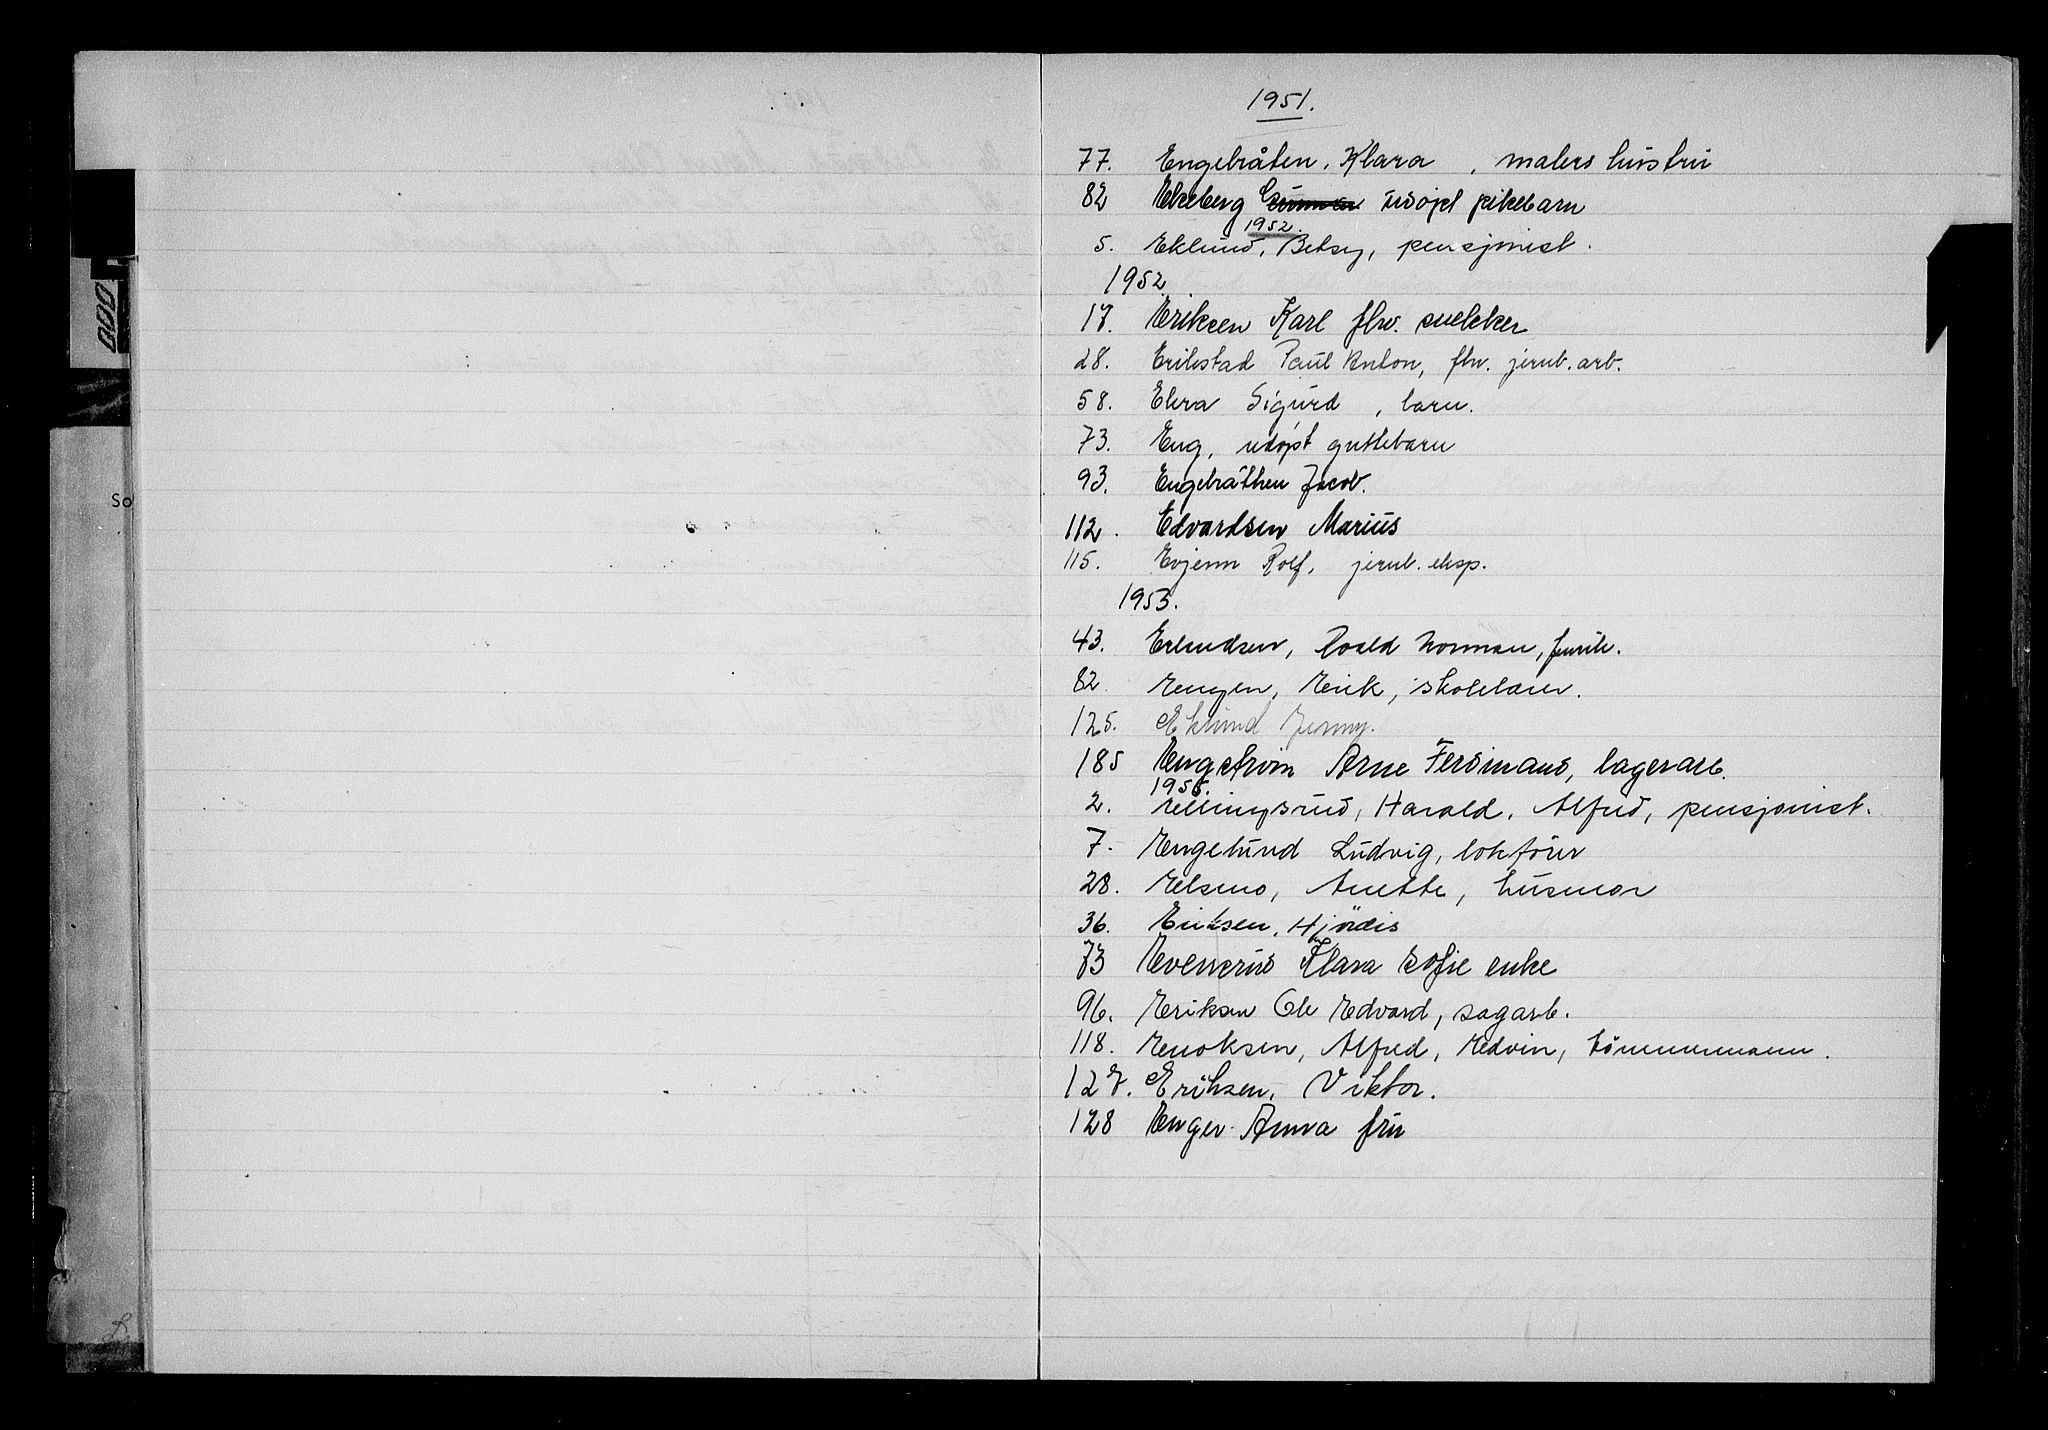 1951.
77. Engebråten, Klara, malers hustru
82 Ekeberg Gunnar udøpt pikebarn
1952.
5. Eklund, Betsy, pensjonist.
1952
17. Eriksen Karl fhv. snekker
28. Erikstad Paul Anton, fhv. jernb. arb.
58. Ekra Sigurd, barn.
73. Eng, udøpt guttebarn
93. Engebråthen Jacob.
112. Edvardsen Marius
115. Evjenn Rolf, jernb. eksp.
1953.
43. Erlandsen, Roald Norman,
82. Engen, Erik, skolelærer.
125. Eklund Jenny.
185 Engstrøm Arne Ferdinand, lagerarb.
195
2. Ellingsrud, Harald, Alfred, pensjonist.
7. Engelund Ludvig, lokfører
28. Elsmo, Anette, husmor
36. Eriksen, Hjördis
73 Evensrud Klara Sofie enke
96. Eriksen Ole Edvard, sagarb.
118. Enoksen, Alfred, Edvin, tömmermann.
127. Eriksen, Viktor.
128 Enger Anna fru
So